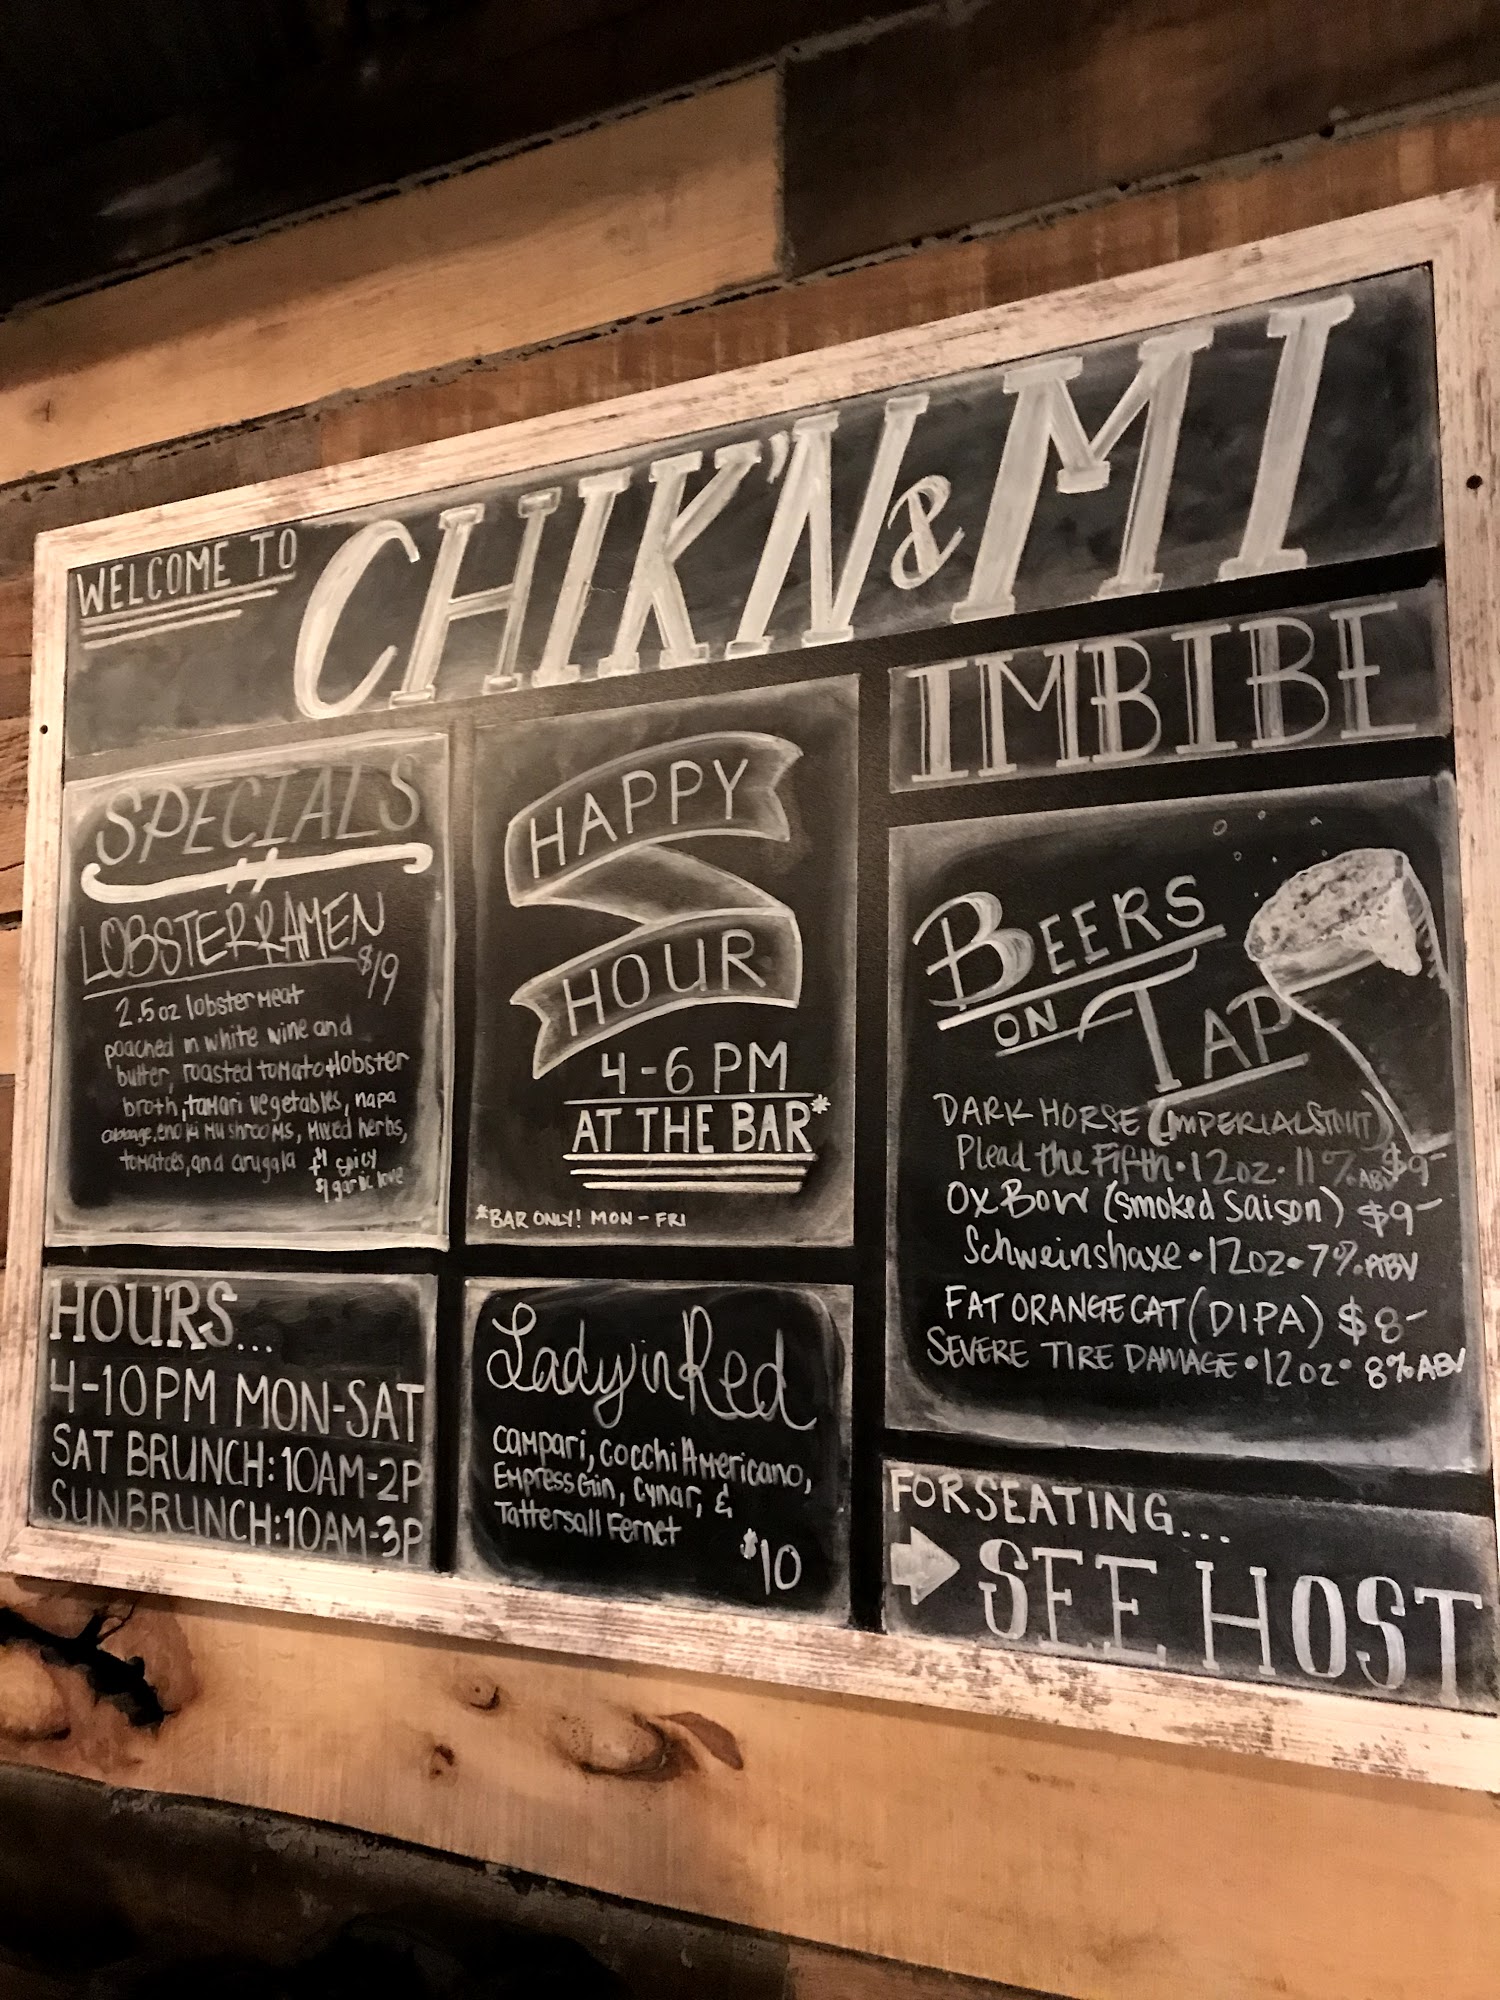 WELCOME TO
CHIK'N & MI
SPECIALS
LOBSTER RAMEN
$19
2.5oz lobster meat
poached in white wine and
butter, roasted tomato + lobster
broth, tamari vegetables, napa
cabbage, enoki mushrooms, mixed herbs,
tomatoes, and aruggla
+$1 spicy
$1 garlic love
HAPPY
HOUR
4-6 PM
AT THE BAR*
*BAR ONLY! MON-FRI
HOURS...
4-10PM MON-SAT
SAT BRUNCH: 10AM-2P
SUN BRUNCH: 10AM-3P
Lady in Red
Campari, Cocchi Americano,
Empress Gin, Cynar, &
Tattersall Fernet
$10
IMBIBE
BEERS
ON TAP
DARK HORSE (IMPERIAL STOUT)
Plead the Fifth • 12oz • 11% ABV $9-
OX BOW (Smoked Saison) $9-
Schweinshaxe • 12oz • 7% ABV
FAT ORANGE CAT (DIPA) $8-
SEVERE TIRE DAMAGE • 12oz • 8% ABV
FOR SEATING...
SEE HOST